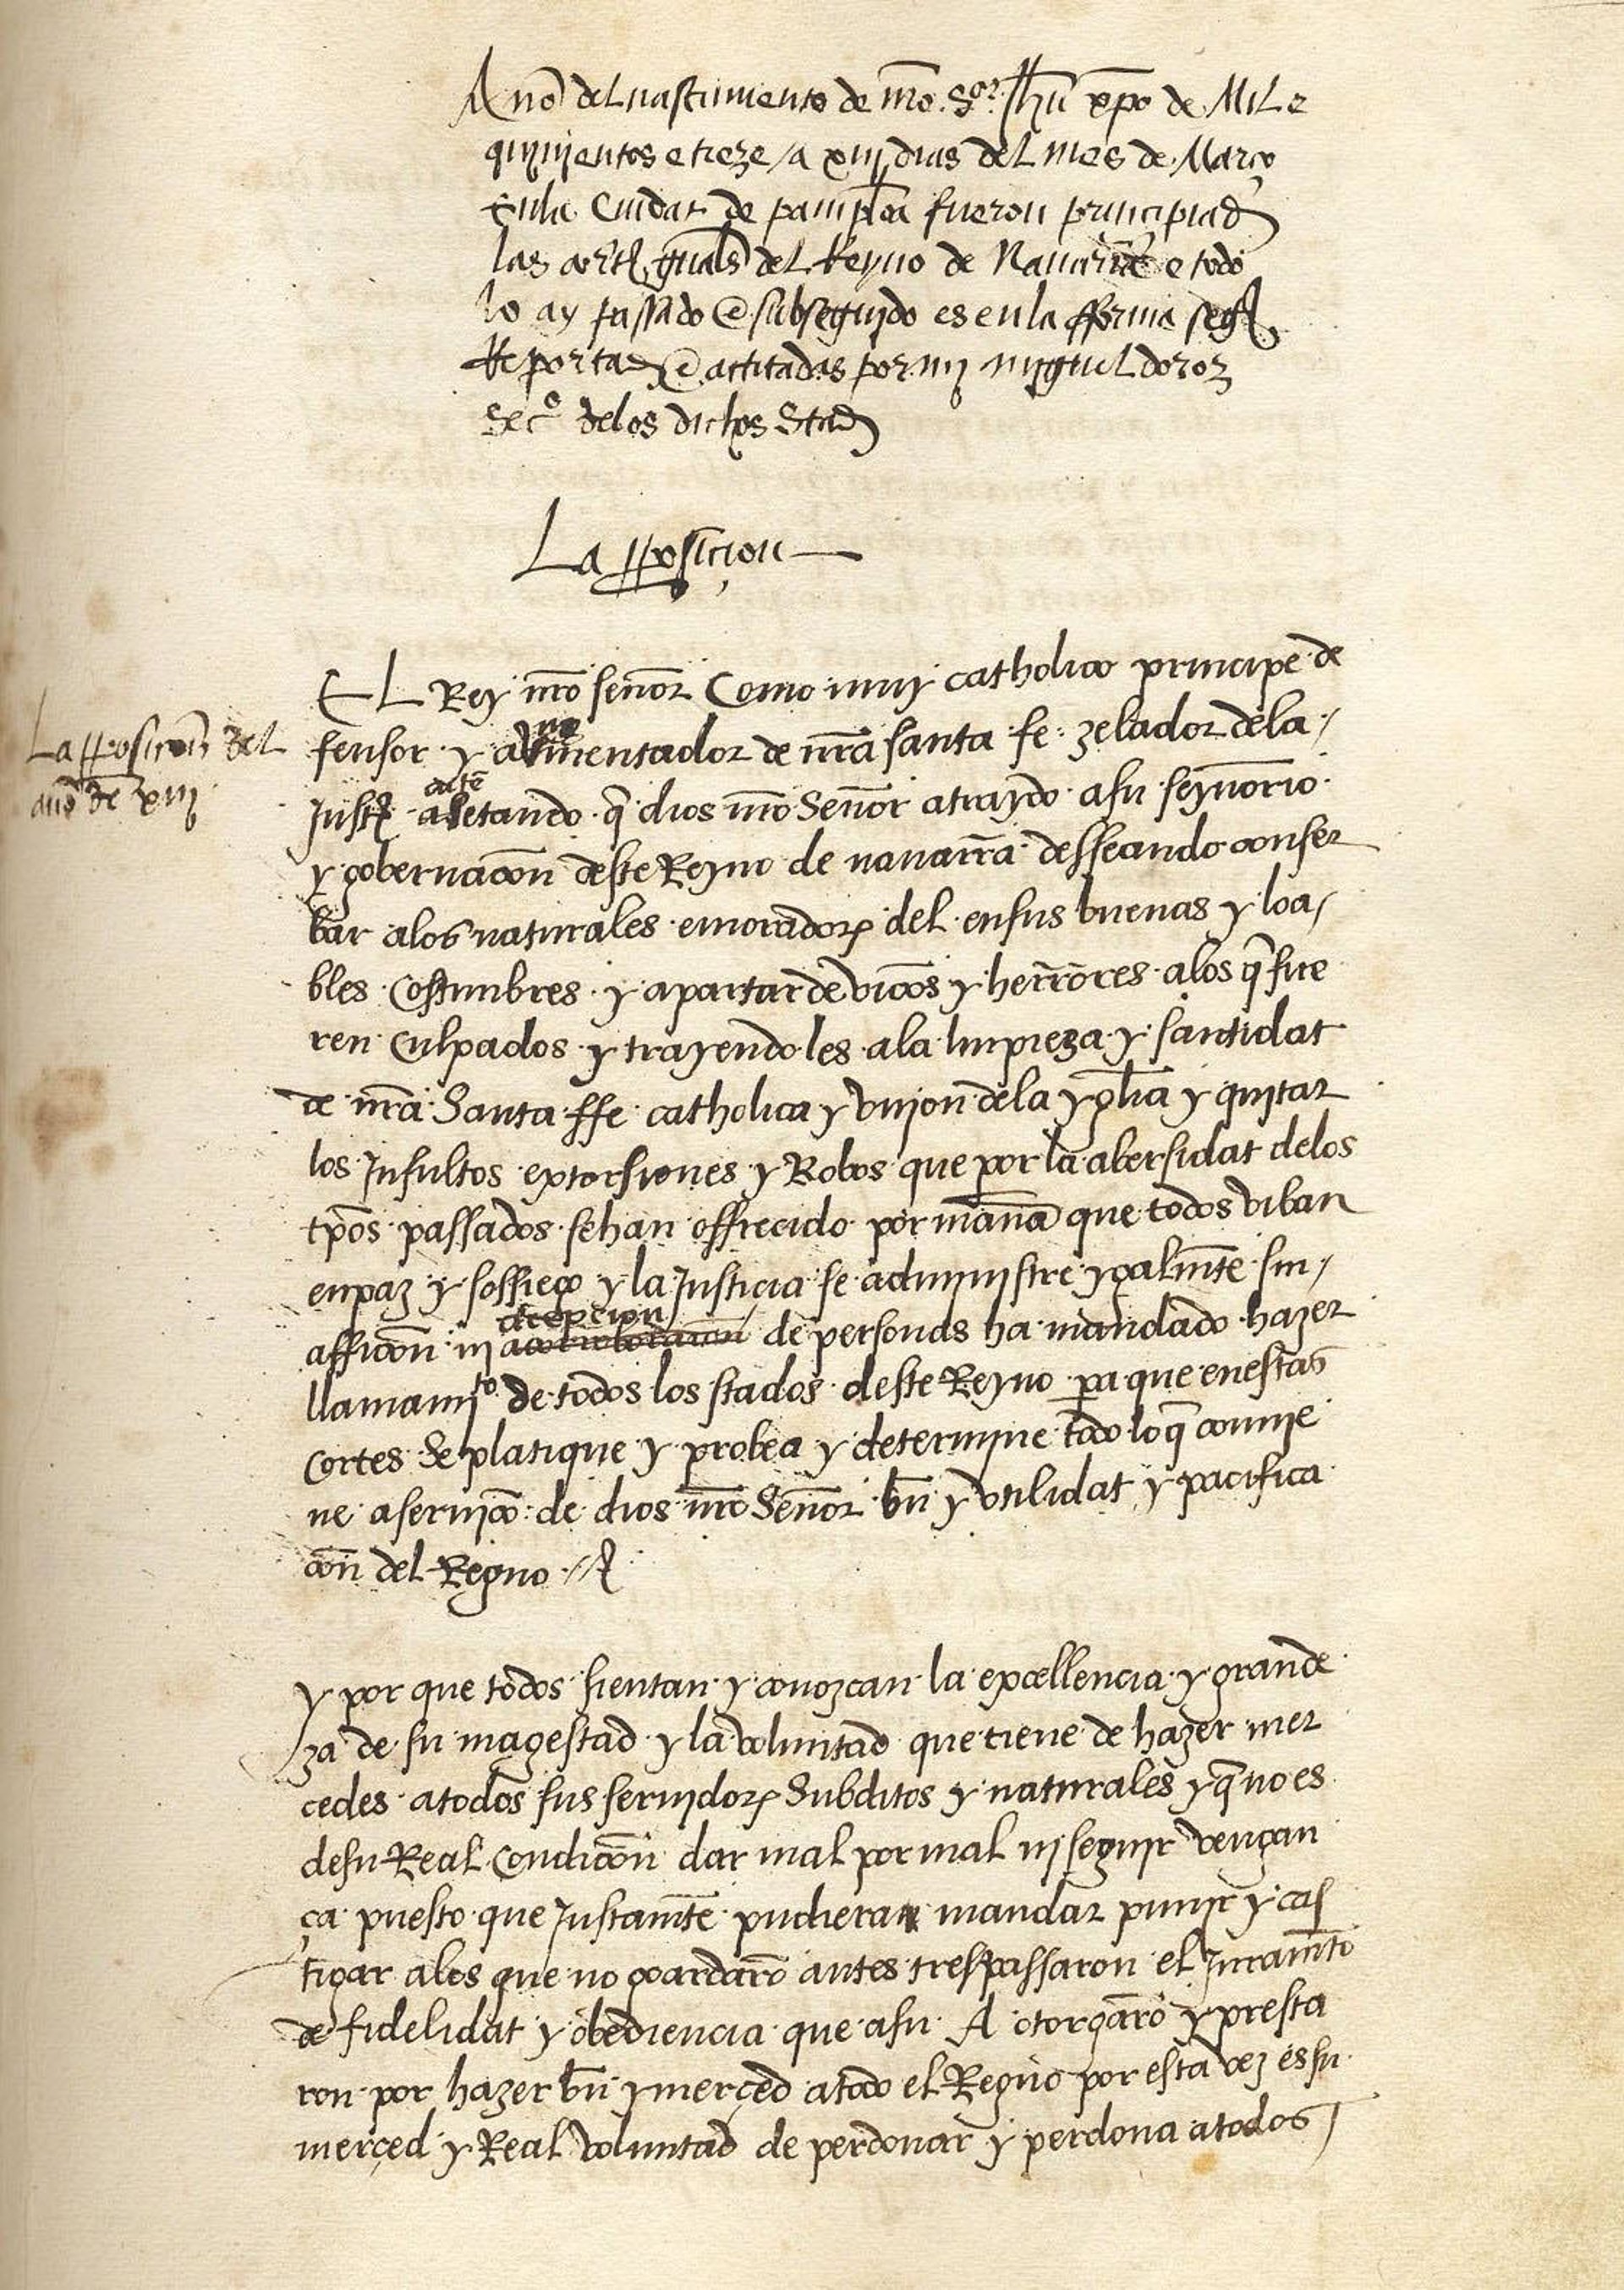 Año del nascimiento de nro. Sor. Jhu xpo de Mil e
quinientos e treze / a xiii dias del mes de Março
en la Ciudat de pamplona fueron principiad
las cortes gnals del Reyno de Nauarra e todo
lo ay passado e subseguido es en la fforma seg
Reportad e actitadas por mi miguel doroz
Secº de los dichos Stad
La pposicion
La pposicion del
año de xiii
EL Rey nro señor Como muy catholico principe de
fensor y aumentador de nra santa fe zelador dela
Just acatando q dios nro Señor atraydo asu seynorio
y gobernacon deste Reyno de nauarra desseando conser
bar alos naturales e morador del en sus buenas y loa
bles costumbres y apartar de vicios y herrores alos q fue
ren culpados y trayendoles ala limpieza y santidat
de nra Santa ffe catholica y vnjon dela yglia y quitar
los Insultos extorsiones y Robos que por la abersidat delos
tpos passados sehan offrecido por mana que todos viban
en paz y sossiego y la Justicia se administre ygalmte sin
afficon nj acepcion de personas ha mandado hazer
llamamjto de todos los stados deste Reyno pa que enestas
cortes Se platique y probea y determine todo lo q conuie
ne a seruico de dios nro Señor bn y vtilidat y pacifica
con del Regno
y por que todos sientan y conozcan la excellencia y grande
za de su magestad y la voluntad que tiene de hazer mer
cedes atodos sus seruidor Subditos y naturales y q no es
desu Real Condicon dar mal por mal nj seguir vengan
ça puesto que Justamte pudiera mandar punir y cas
tigar alos que no goardaro antes trespassaron el Juramto
de fidelidat y obediencia que asu A otorgaro y presta
ron por hazer bn y merçed atodo el Regno por esta vez es su
merçed y Real voluntad de perdonar y perdona atodos